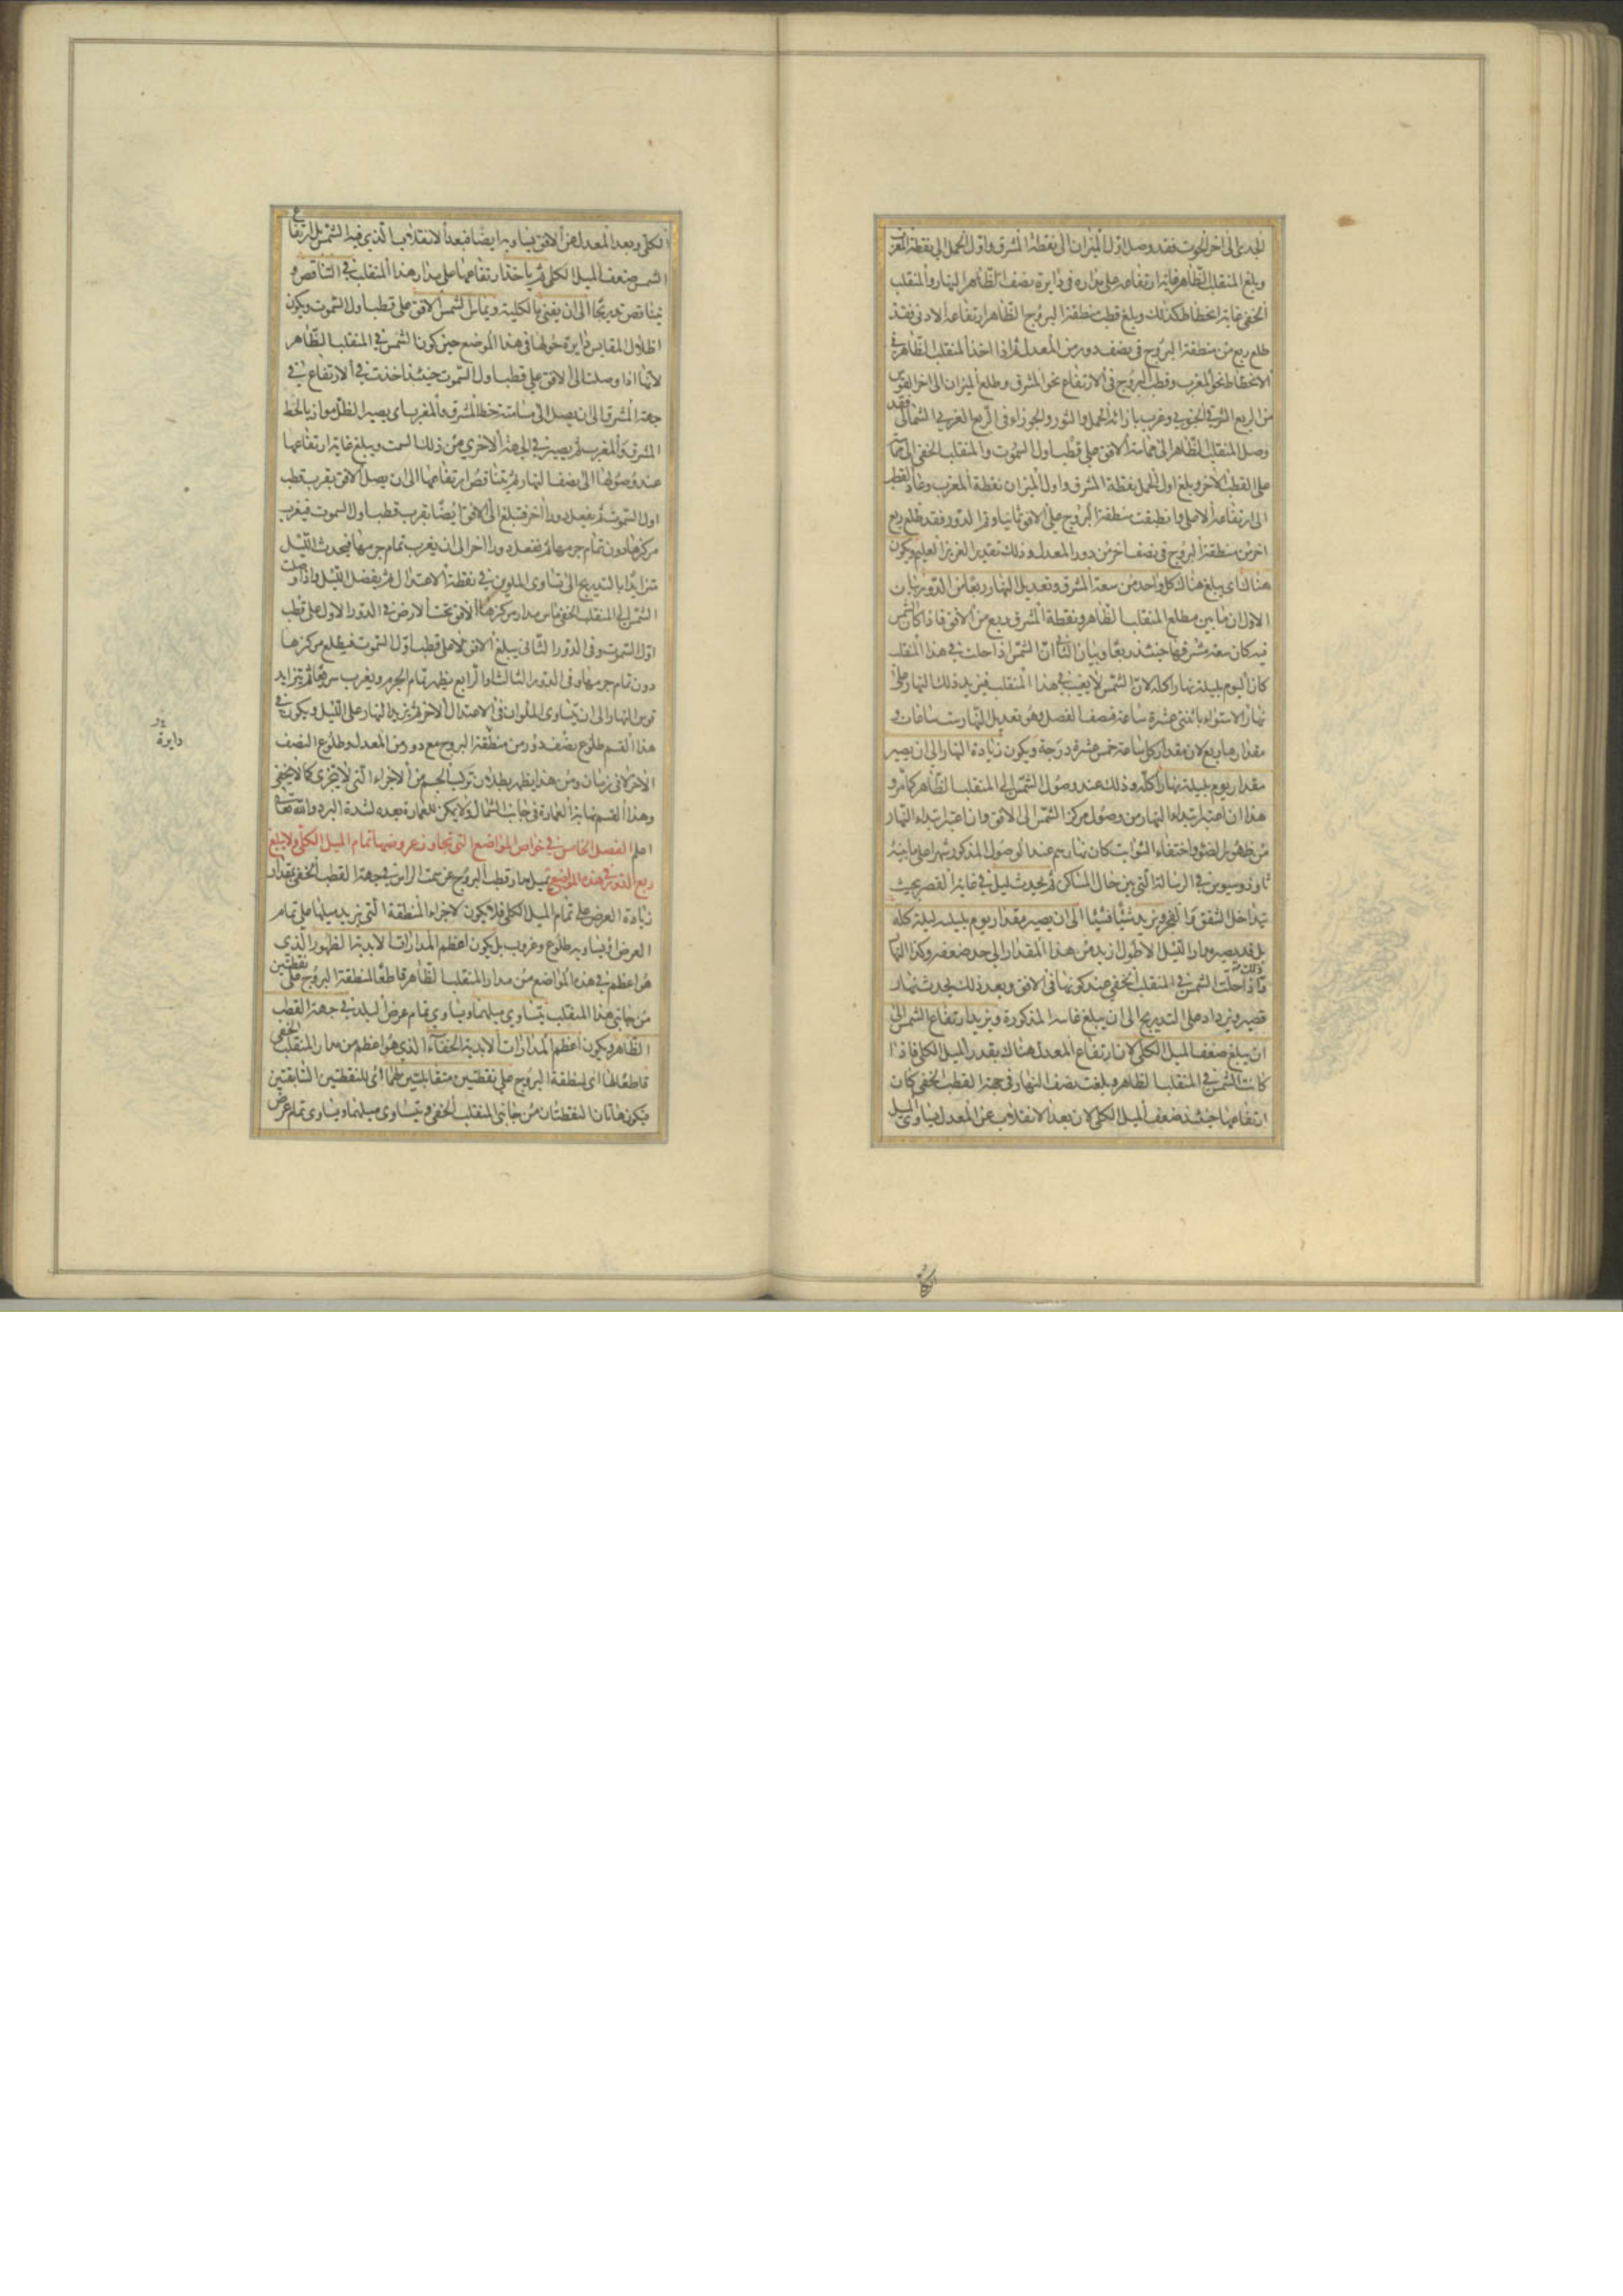 الجدى الى اخر الحوت فقد وصل اول الميزان الى نقطة المشرق واول الحمل الى نقطة المغرب
وبلغ المنقلب الظاهر غاية ارتفاعه على مداره فى دايرة نصف الظاهر النهار والمنقلب
الخفى غاية انحطاطه كذلك وبلغ قطب منطقة البروج الظاهر ارتفاعه الادنى فقد
طلع ربع من منطقة البروج فى نصف دور من المعدل ثم اذا اخذ المنقلب الظاهر فى
الانحطاط نحو المغرب وقطب البروج فى الارتفاع نحو المشرق وطلع الميزان الى اخر القوس
من الربع الشرقى الجنوبى وغرب بازائه الحمل والثور والجوزاء فى الربع الغربى الشمالى فقد
وصل المنقلب الظاهر الى مماسة الافق على قطب اول السموت والمنقلب الخفى الى مماسته
على القطب الاخر وبلغ اول الحمل نقطة المشرق واول الميزان نقطة المغرب وعاد القطب
الى ارتفاعه الاعلى وانطبقت منطقة البروج على الافق ثانيا وتم الدور فقد طلع ربع
اخر من منطقة البروج فى نصف اخر من دور المعدل وذلك تقدير العزيز العليم ويكون
هناك اى يبلغ هناك كل واحد من سعة المشرق وتعديل النهار ربعا من الدور بيان
الاول ان ما بين مطلع المنقلب الظاهر ونقطة المشرق ربع من الافق فاذا كان الشمس
فيه كان سعة مشرقها حينئذ ربعا وبيان الثانى ان الشمس اذا حلت فى هذا المنقلب
كان اليوم بليلته نهارا كله لان الشمس لا يغيب فى هذا المنقلب فيزيد ذلك النهار على
نهار الاستواء باثنتى عشرة ساعة فنصف الفصل وهو تعديل النهار ست ساعات و
مقدارها ربع لان مقدار كل ساعة خمس عشرة درجة ويكون زيادة النهار الى ان يصير
مقدار يوم بليلته نهارا كله وذلك عند وصول الشمس الى المنقلب الظاهر كما مر و
هذا ان اعتبر ابتداء النهار من وصول مركز الشمس الى الافق وان اعتبر ابتداء النهار
من ظهور الضوء واختفاء الثوابت كان نهارهم عند الوصول المذكور شهرا على ما بينه
ثاوذوسيوس فى الرسالة التى بين حال المساكن ثم يحدث ليل فى غاية القصر بحيث
يتداخل الشفق والفجر ويزيد شيئا فشيئا الى ان يصير مقدار يوم بليلته ليلة كله
بل قد يصير مدار الليل الاطول ازيد من هذا المقدار الى حد ضعفه وكذا النهار
وذلك اذا حلت الشمس فى المنقلب الخفى عند كونها فى الافق وبعد ذلك يحدث نهار
قصير ويزداد على التدريج الى ان يبلغ غايته المذكورة ويزيد ارتفاع الشمس الى
ان يبلغ ضعف الميل الكلى لان ارتفاع المعدل هناك بقدر الميل الكلى فاذا
كانت الشمس فى المنقلب الظاهر وبلغت نصف النهار فى جهة القطب الخفى كان
ارتفاعها حينئذ ضعف الميل الكلى لان بعد الانقلاب عن المعدل يساوى الميل
الكلى وبعد المعدل عن الافق يساويه ايضا فبعد الانقلاب الذى فيه الشمس بل ارتفاع
الشمس ضعف الميل الكلى ثم ياخذ ارتفاعها على مدار هذا المنقلب فى التناقص و
يتناقص تدريجا الى ان يفنى بالكلية ويماس الشمس الافق على قطب اول السموت ويكون
اظلال المقاييس دايرة حولها فى هذا الموضع حين كون الشمس فى المنقلب الظاهر
لانها اذا وصلت الى الافق على قطب اول السموت حينئذ اخذت فى الارتفاع فى
جهة المشرق الى ان يصل الى مسامتة خط المشرق والمغرب اى يصير الظل موازيا لخط
المشرق والمغرب ثم يصير فى الجهة الاخرى من ذلك السمت ويبلغ غاية ارتفاعها
عند وصولها الى نصف النهار ثم يتناقص ارتفاعها الى ان يصل الافق بقرب قطب
اول السموت ثم يفعل دورا اخر فتبلغ الى الافق ايضا بقرب قطب اول السموت فيغرب
مركزها دون تمام جرمها ثم تفعل دورا اخر الى ان يغرب تمام جرمها فيحدث الليل
متزايدا بالتدريج الى تساوى الملوين فى نقطة الاعتدال ثم يفضل الليل واذا وصلت
الشمس الى المنقلب الخفى ماس مدار مركزها الافق تحت الارض فى الدور الاول على قطب
اول السموت وفى الدور الثانى يبلغ الافق لا على قطب اول السموت فيطلع مركزها
دون تمام جرمها وفى الدور الثالث او الرابع يظهر تمام الجرم ويغرب سريعا ثم يتزايد
قوس النهار الى ان يتساوى الملوان فى الاعتدال الاخر ثم يزيد النهار على الليل ويكون فى
هذا القسم طلوع نصف دور من منطقة البروج مع دور من المعدل وطلوع النصف
الاخر لا فى زمان ومن هذا يظهر بطلان تركب الجسم من الاجزاء التى لا يتجزى كما لا يخفى
وهذا القسم نهاية العمارة فى جانب الشمال ولا يمكن للعمارة بعده لشدة البرد والله تعالى
اعلم الفصل الخامس فى خواص المواضع التى تجاوز عروضها تمام الميل الكلى ولا يبلغ
ربع الدور فى هذه المواضع يميل مدار قطب البروج عن سمت الراس فى جهة القطب الخفى بمقدار
زيادة العرض على تمام الميل الكلى فلا يكون لاجزاء المنطقة التى يزيد ميلها على تمام
العرض او يساويه طلوع وغروب بل يكون اعظم المدارات الابدية الظهور الذى
هو اعظم فى هذه المواضع من مدار المنقلب الظاهر قاطعا لمنطقة البروج على نقطتين
من جانبى هذا المنقلب يتساوى ميلهما ويساوى تمام عرض البلد فى جهة القطب
الظاهر ويكون اعظم المدارات الابدية الخفاء الذى هو اعظم من مدار المنقلب الخفى
قاطعا لها اى لمنطقة البروج على نقطتين متقابلتين لهما اى للنقطتين السابقتين
فيكون هاتان النقطتان من جانبى المنقلب الخفى ويتساوى ميلهما ويساوى تمام عرض
دايرة